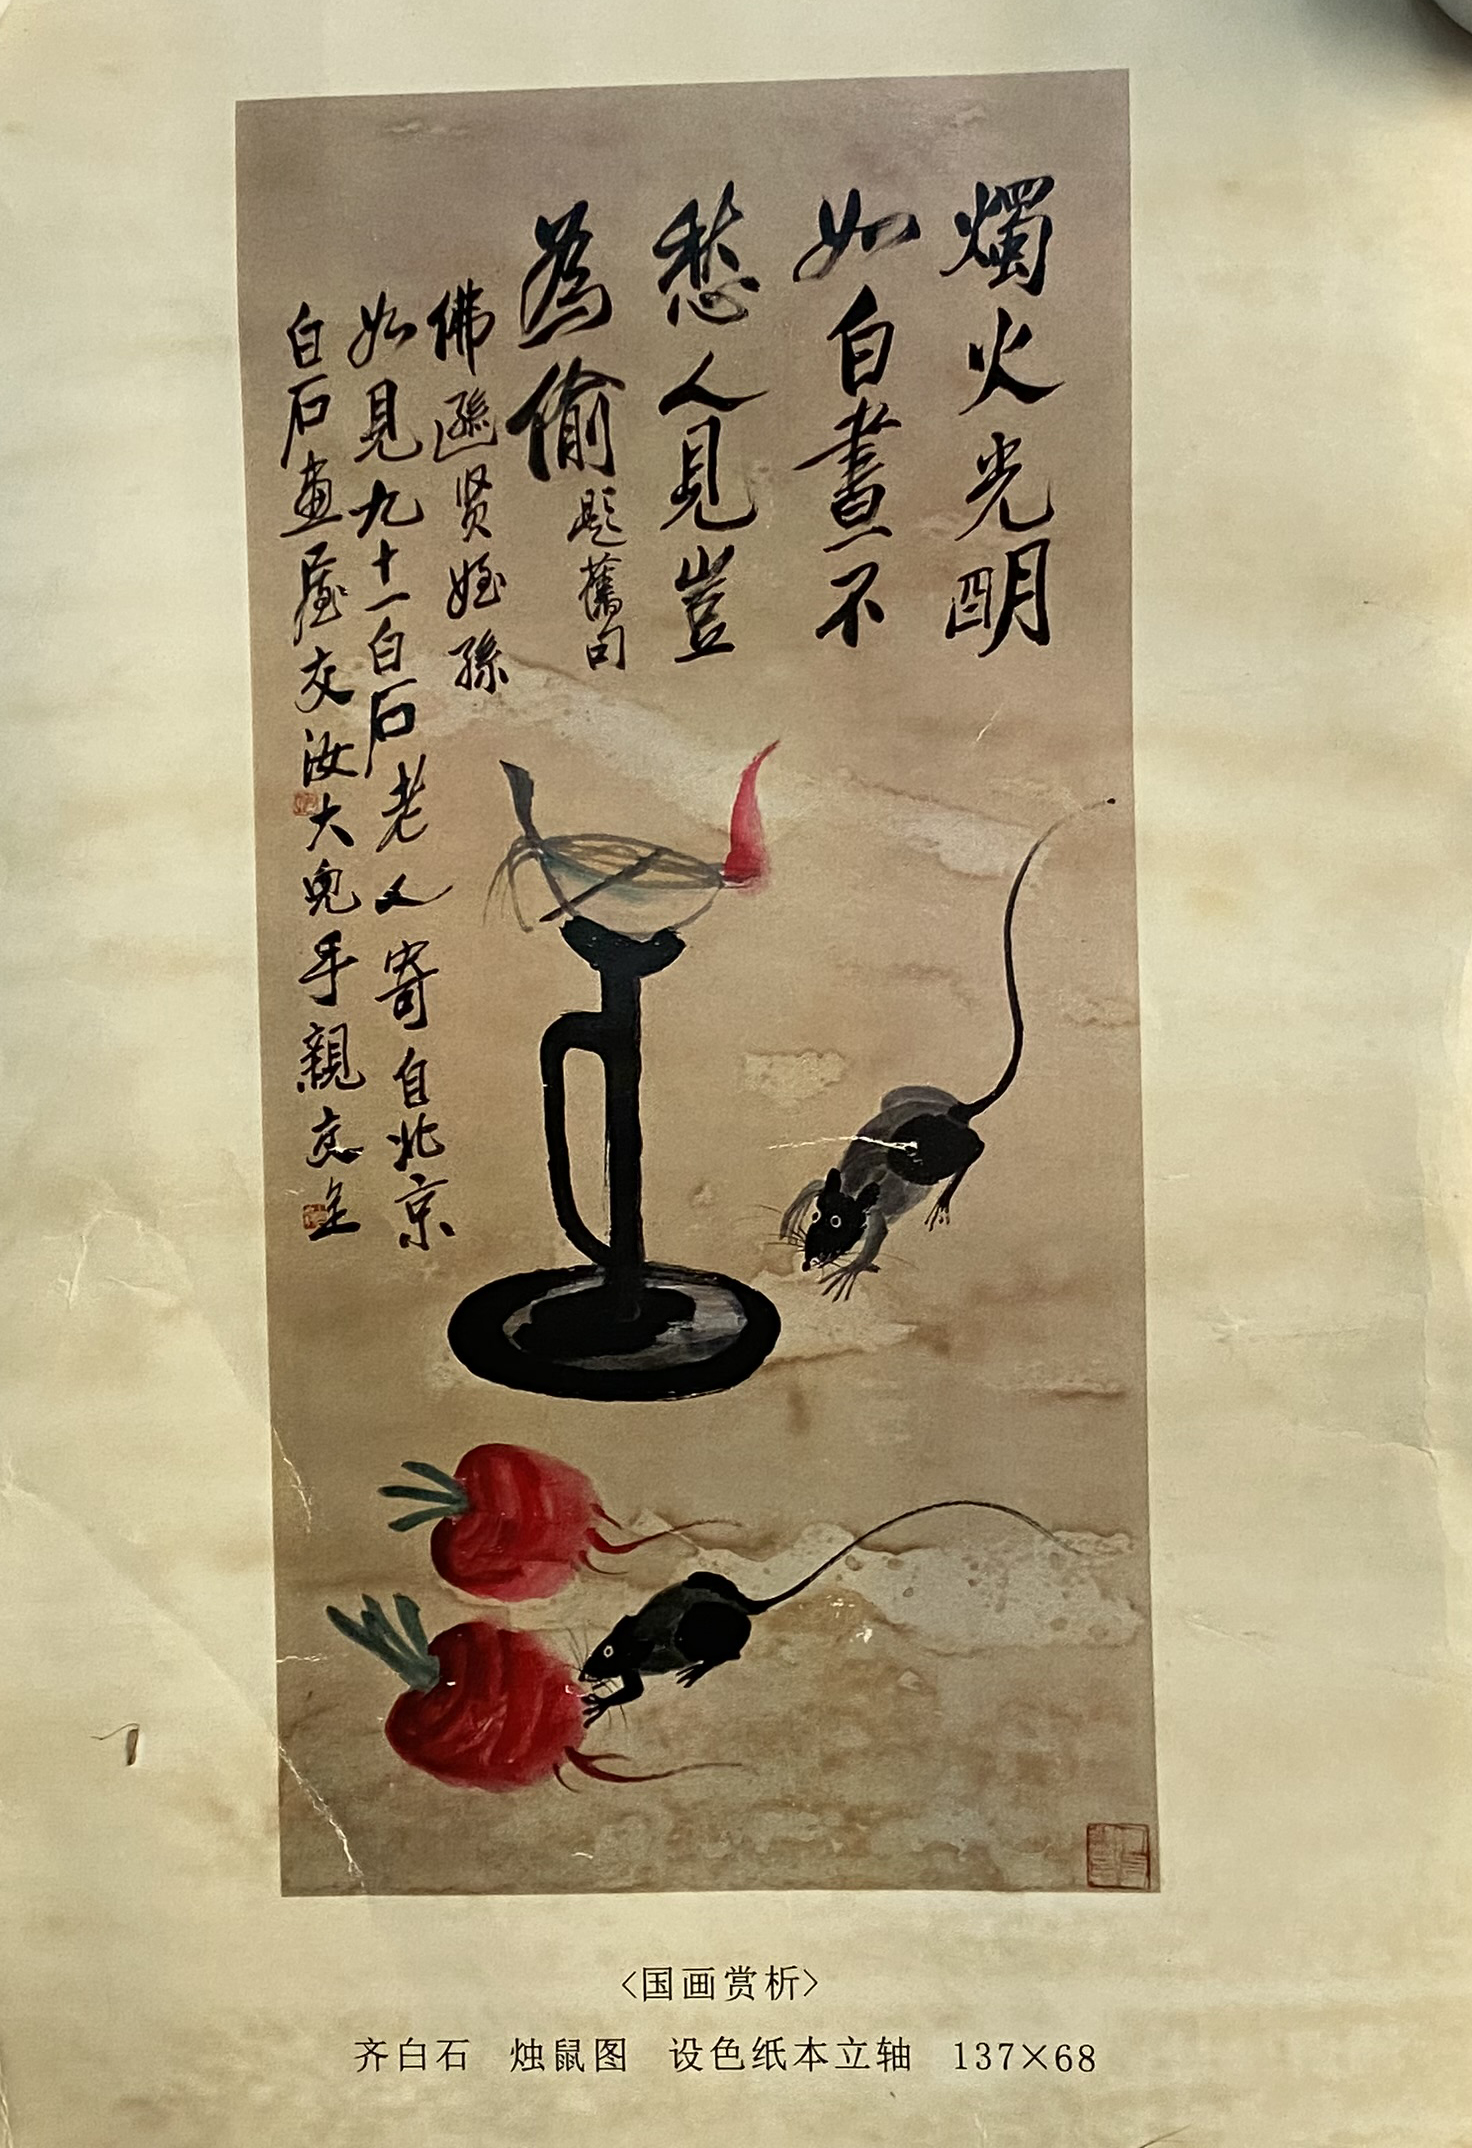 燭火光明
如白晝不
愁人見豈
為偷
題舊句
佛
賢姪孫
如見九十一白石老人寄自北京
白石畫屋交汝大兒手親交
〈国画赏析〉
齐白石 烛鼠图 设色纸本立轴 137×68